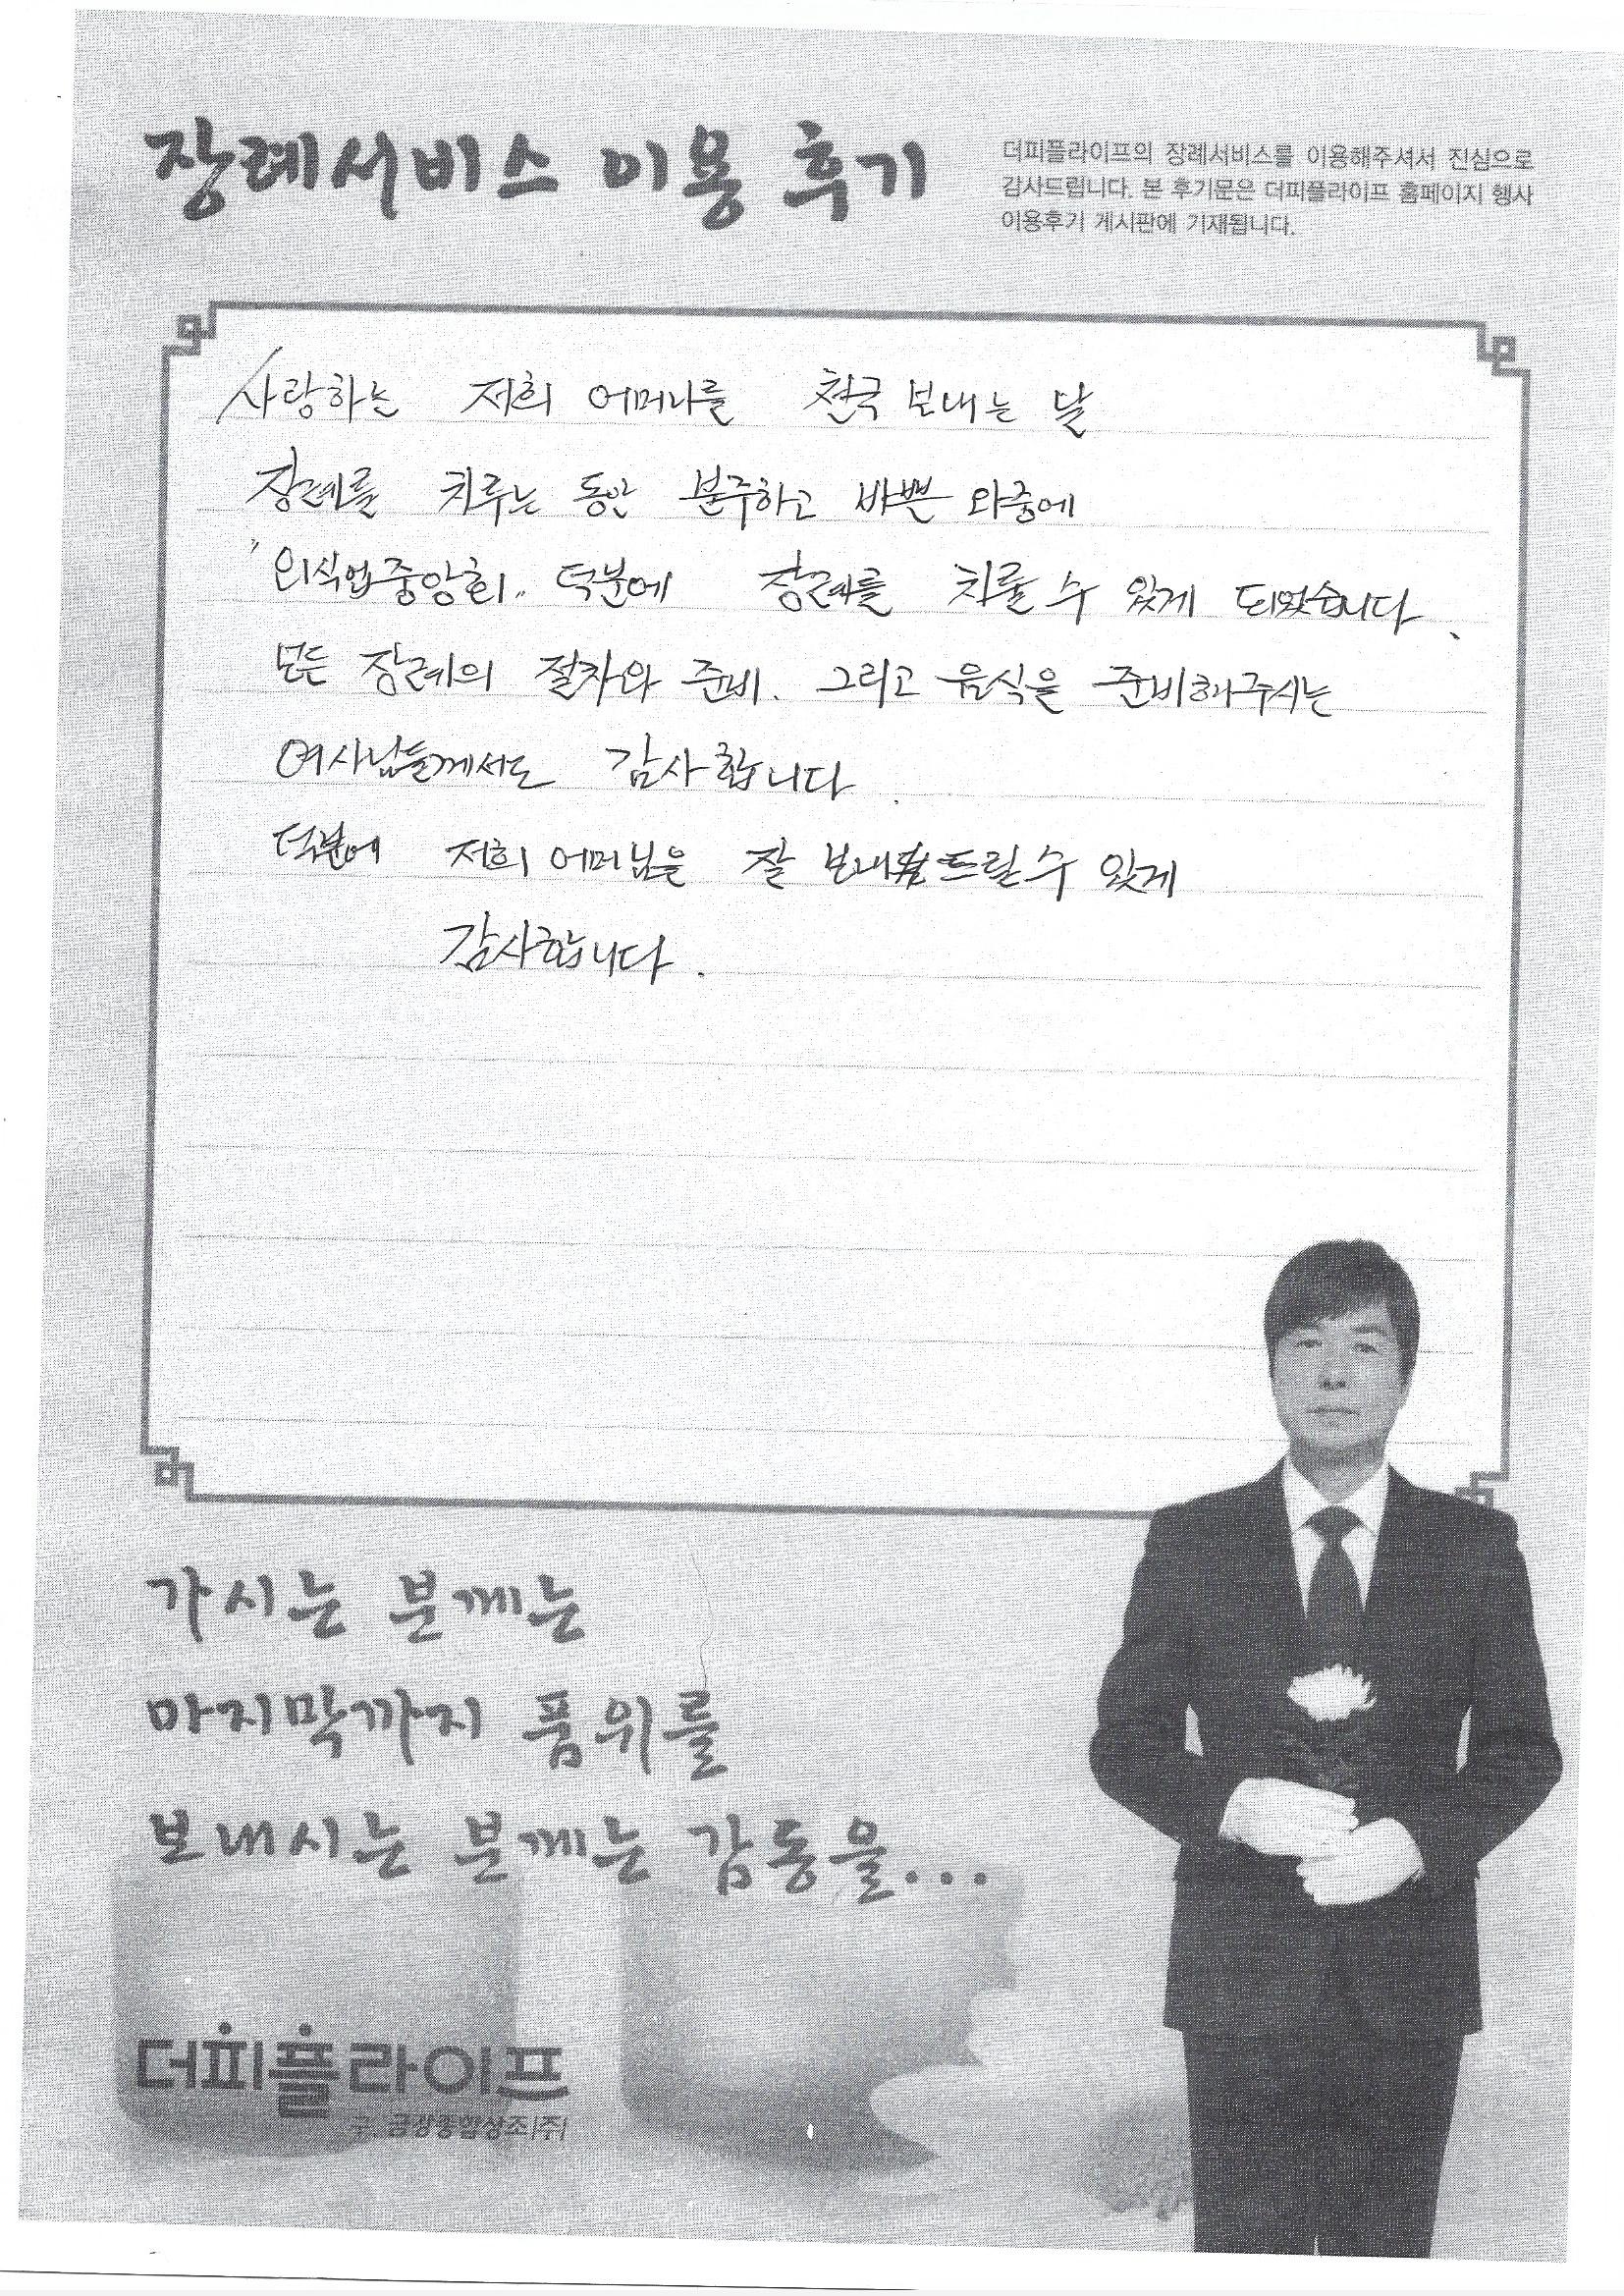 장례서비스 이용 후기
더피플라이프의 장례서비스를 이용해주셔서 진심으로
감사드립니다. 본 후기문은 더피플라이프 홈페이지 행사
이용후기 게시판에 기재됩니다.
사랑하는 저희 어머니를 천국 보내는 날
장례를 치루는 동안 분주하고 바쁜 와중에
"외식업중앙회" 덕분에 장례를 치룰 수 있게 되었습니다.
모든 장례의 절차와 준비. 그리고 음식을 준비해주시는
여사님들께서도 감사합니다.
덕분에 저희 어머님을 잘 보내 드릴 수 있게
감사합니다.
가시는 분께는
마지막까지 품위를
보내시는 분께는 감동을...
더피플라이프
구. 금강종합상조(주)